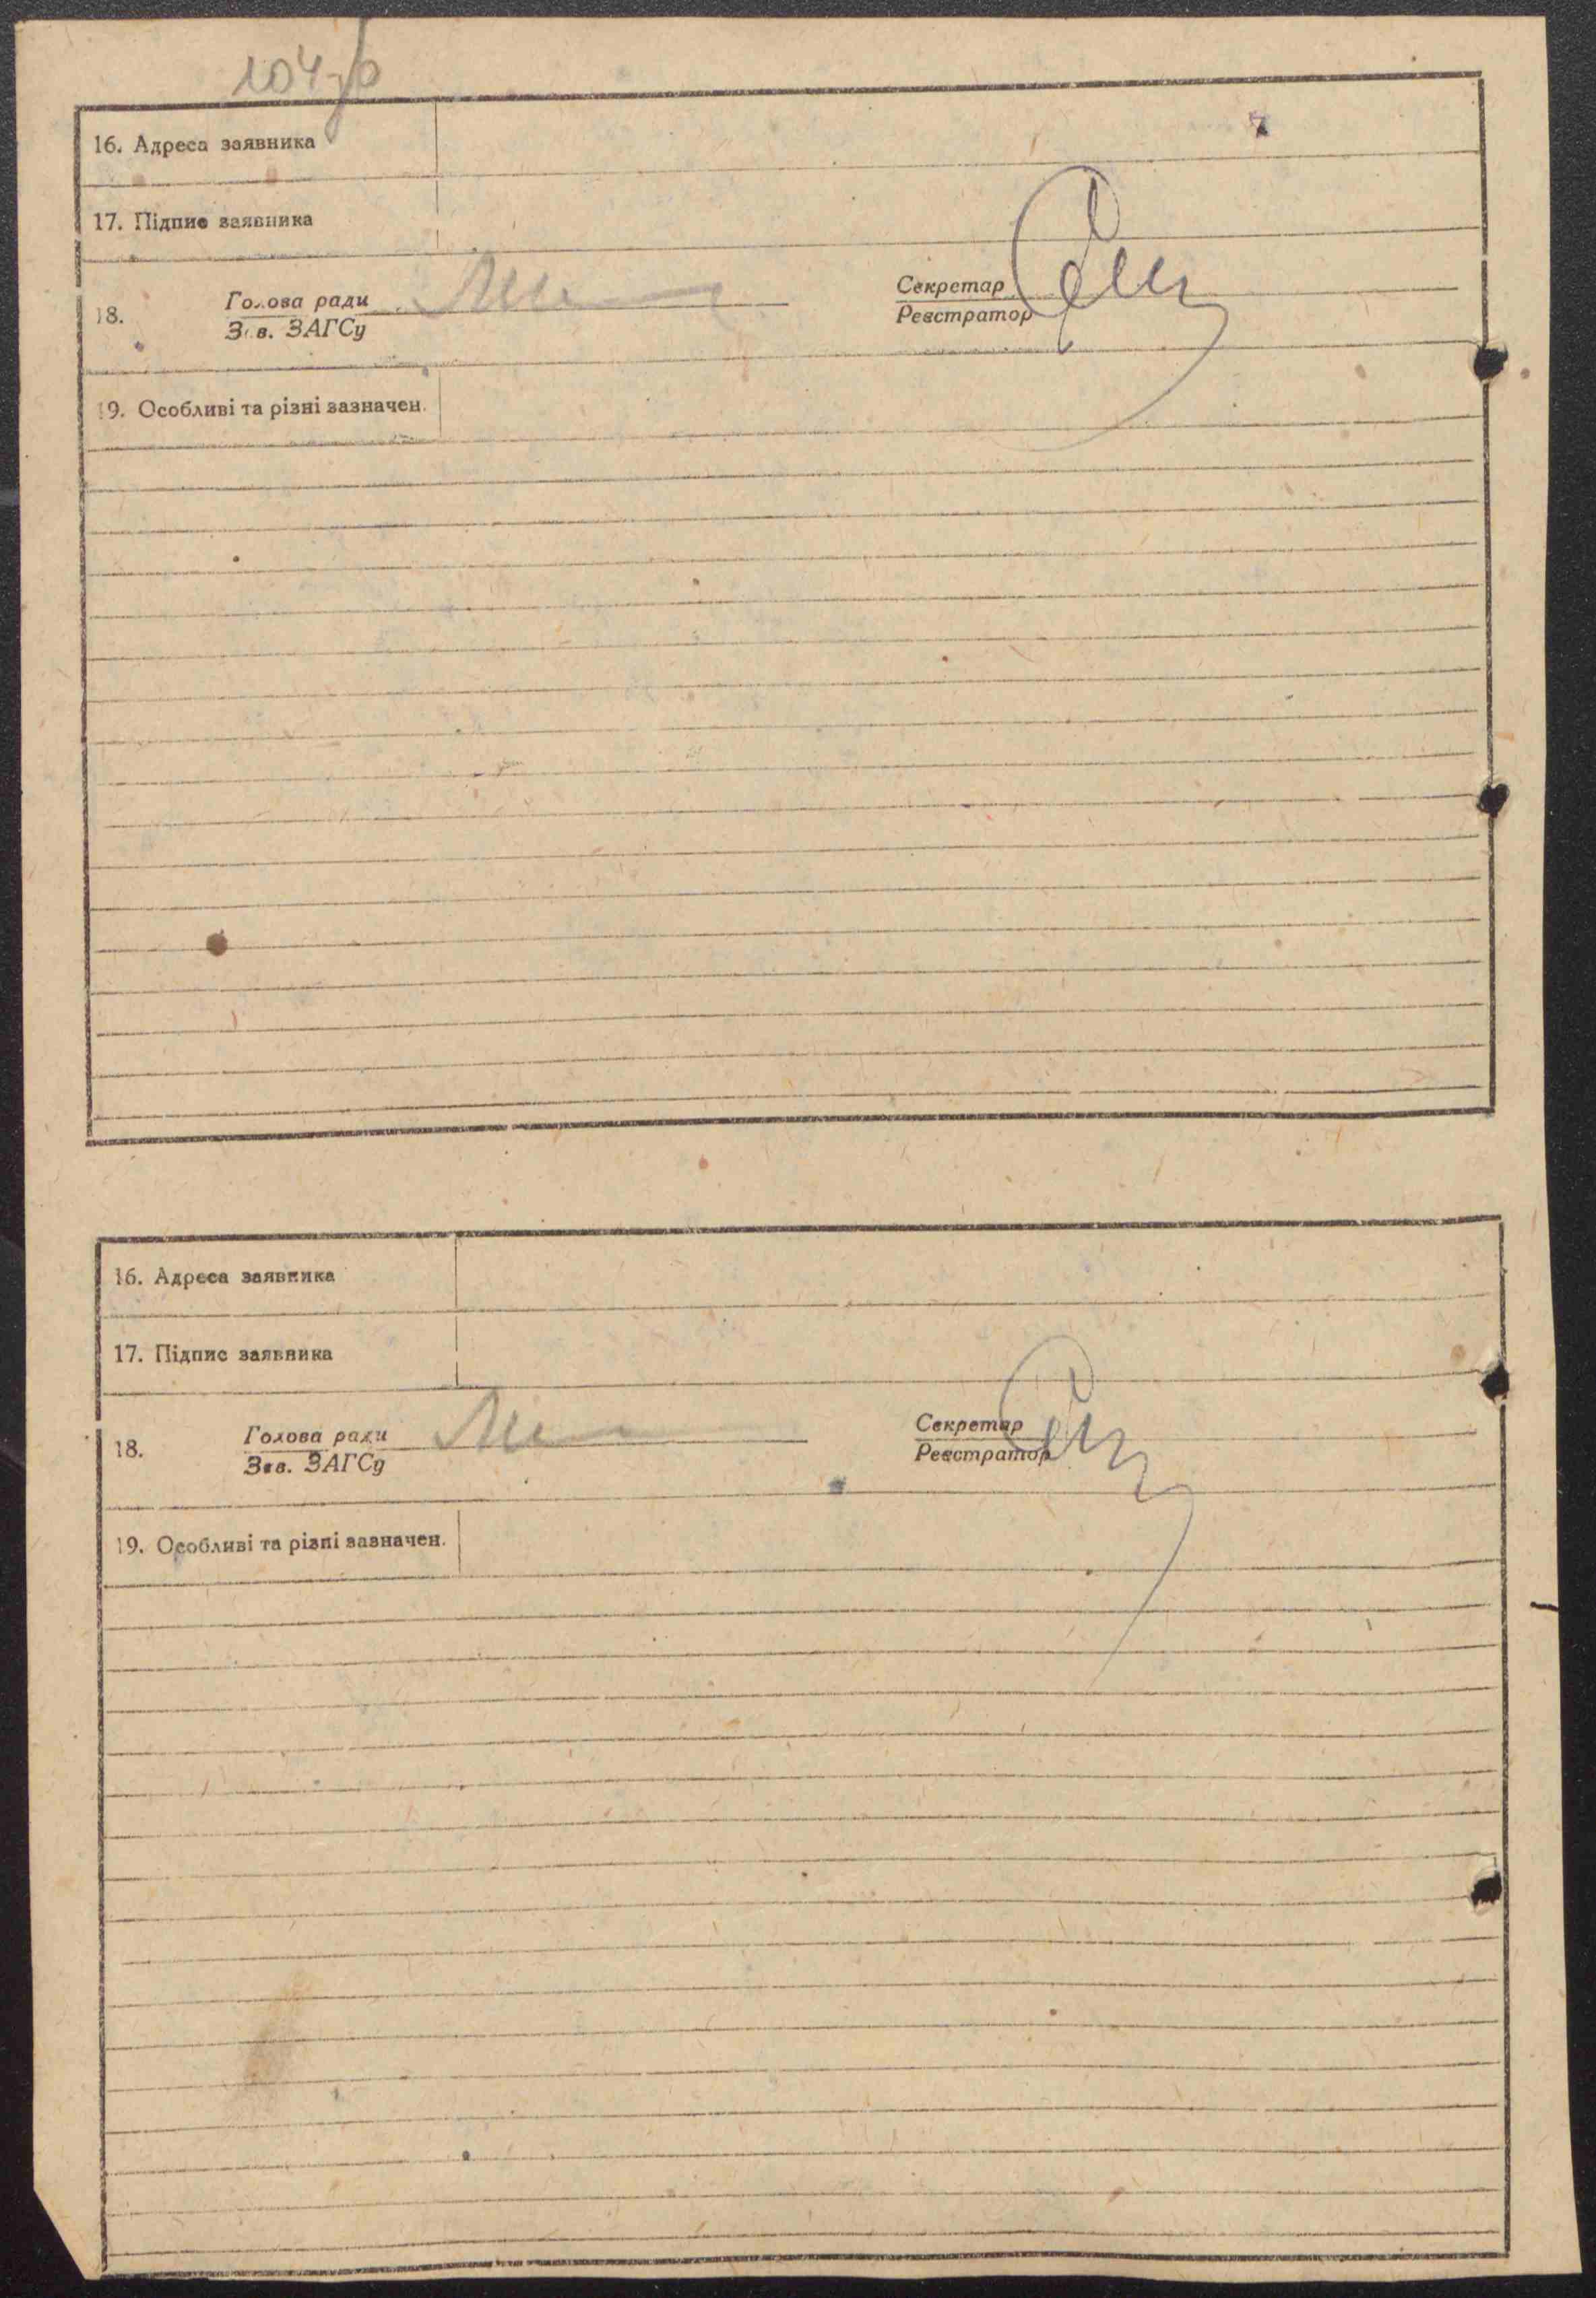 104зв
16. Адреса заявника
17. Підпис заявника
18. Голова ради Секретар
Зав. ЗАГСу Реєстратор
19. Особливі та різні зазначен.
16. Адреса заявника
17. Підпис заявника
18. Голова ради Секретар
Зав. ЗАГСу Реєстратор
19. Особливі та різні зазначен.